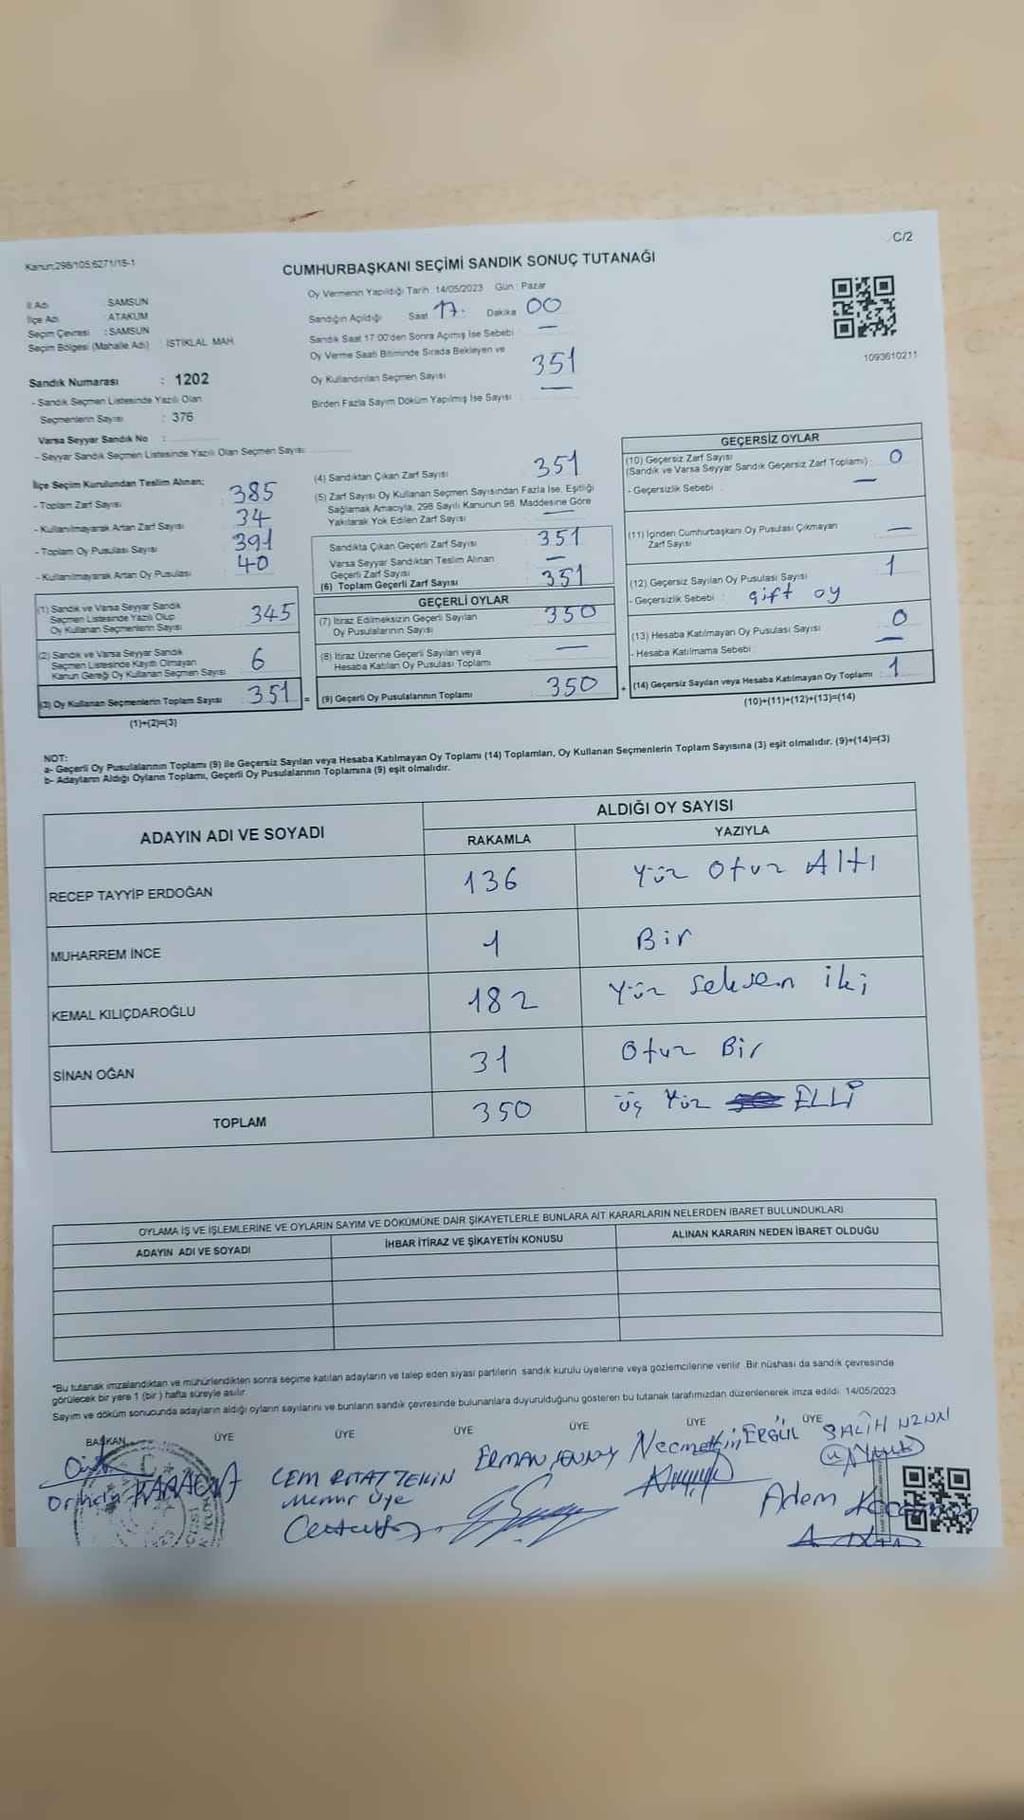 C/2
Kanun:298/105,6271/15-1
CUMHURBAŞKANI SEÇİMİ SANDIK SONUÇ TUTANAĞI
İl Adı : SAMSUN
İlçe Adı : ATAKUM
Seçim Çevresi : SAMSUN
Seçim Bölgesi (Mahalle Adı) : İSTİKLAL MAH.
Sandık Numarası : 1202
- Sandık Seçmen Listesinde Yazılı Olan
Seçmenlerin Sayısı : 376
Varsa Seyyar Sandık No :
- Seyyar Sandık Seçmen Listesinde Yazılı Olan Seçmen Sayısı
Oy Vermenin Yapıldığı Tarih : 14/05/2023 Gün : Pazar
Sandığın Açıldığı Saat 17. Dakika 00
Sandık Saat 17:00'den Sonra Açımış İse Sebebi : —
Oy Verme Saati Bitiminde Sırada Bekleyen ve
Oy Kullandırılan Seçmen Sayısı 351
Birden Fazla Sayım Döküm Yapılmış İse Sayısı : —
1093610211
İlçe Seçim Kurulundan Teslim Alınan:
- Toplam Zarf Sayısı 385
- Kullanılmayarak Artan Zarf Sayısı 34
- Toplam Oy Pusulası Sayısı 391
- Kullanılmayarak Artan Oy Pusulası 40
(1) Sandık ve Varsa Seyyar Sandık
Seçmen Listesinde Yazılı Olup
Oy Kullanan Seçmenlerin Sayısı 345
(2) Sandık ve Varsa Seyyar Sandık
Seçmen Listesinde Kayıtlı Olmayan
Kanun Gereği Oy Kullanan Seçmen Sayısı 6
(3) Oy Kullanan Seçmenlerin Toplam Sayısı 351 =
(1)+(2)=(3)
(4) Sandıktan Çıkan Zarf Sayısı 351
(5) Zarf Sayısı Oy Kullanan Seçmen Sayısından Fazla İse, Eşitliği
Sağlamak Amacıyla, 298 Sayılı Kanunun 98. Maddesine Göre
Yakılarak Yok Edilen Zarf Sayısı —
Sandıkta Çıkan Geçerli Zarf Sayısı 351
Varsa Seyyar Sandıktan Teslim Alınan
Geçerli Zarf Sayısı —
(6) Toplam Geçerli Zarf Sayısı 351
GEÇERLİ OYLAR
(7) İtiraz Edilmeksizin Geçerli Sayılan
Oy Pusulalarının Sayısı 350
(8) İtiraz Üzerine Geçerli Sayılan veya
Hesaba Katılan Oy Pusulası Toplamı —
(9) Geçerli Oy Pusulalarının Toplamı 350 +
GEÇERSİZ OYLAR
(10) Geçersiz Zarf Sayısı
(Sandık ve Varsa Seyyar Sandık Geçersiz Zarf Toplamı) : 0
- Geçersizlik Sebebi —
(11) İçinden Cumhurbaşkanı Oy Pusulası Çıkmayan
Zarf Sayısı —
(12) Geçersiz Sayılan Oy Pusulası Sayısı 1
- Geçersizlik Sebebi : çift oy
(13) Hesaba Katılmayan Oy Pusulası Sayısı 0
- Hesaba Katılmama Sebebi —
(14) Geçersiz Sayılan veya Hesaba Katılmayan Oy Toplamı 1
(10)+(11)+(12)+(13)=(14)
NOT:
a- Geçerli Oy Pusulalarının Toplamı (9) ile Geçersiz Sayılan veya Hesaba Katılmayan Oy Toplamı (14) Toplamları, Oy Kullanan Seçmenlerin Toplam Sayısına (3) eşit olmalıdır. (9)+(14)=(3)
b- Adayların Aldığı Oyların Toplamı, Geçerli Oy Pusulalarının Toplamına (9) eşit olmalıdır.
ADAYIN ADI VE SOYADI
ALDIĞI OY SAYISI
RAKAMLA YAZIYLA
RECEP TAYYİP ERDOĞAN 136 Yüz Otuz Altı
MUHARREM İNCE 1 Bir
KEMAL KILIÇDAROĞLU 182 Yüz Seksen iki
SİNAN OĞAN 31 Otuz Bir
TOPLAM 350 üç Yüz ELLİ
OYLAMA İŞ VE İŞLEMLERİNE VE OYLARIN SAYIM VE DÖKÜMÜNE DAİR ŞİKAYETLERLE BUNLARA AİT KARARLARIN NELERDEN İBARET BULUNDUKLARI
ADAYIN ADI VE SOYADI İHBAR İTİRAZ VE ŞİKAYETİN KONUSU ALINAN KARARIN NEDEN İBARET OLDUĞU
*Bu tutanak imzalandıktan ve mühürlendikten sonra seçime katılan adayların ve talep eden siyasi partilerin sandık kurulu üyelerine veya gözlemcilerine verilir. Bir nüshası da sandık çevresinde
görülecek bir yere 1 (bir) hafta süreyle asılır.
Sayım ve döküm sonucunda adayların aldığı oyların sayılarını ve bunların sandık çevresinde bulunanlara duyurulduğunu gösteren bu tutanak tarafımızdan düzenlenerek imza edildi. 14/05/2023
BAŞKAN ÜYE ÜYE ÜYE ÜYE ÜYE ÜYE
Necmettin ERGÜL
SALİH
CEM
Memur Üye
ERMAN
Adem